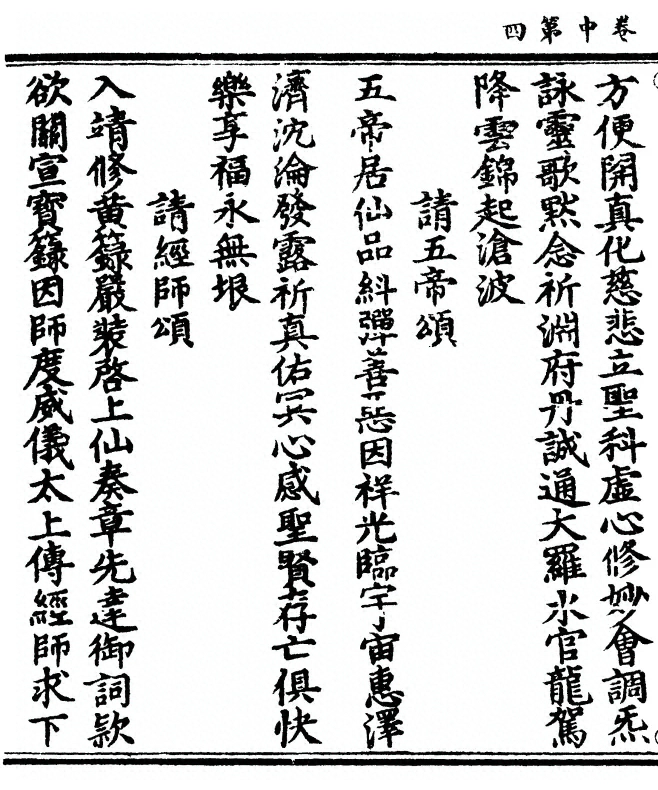 卷中第四
方便開真化慈悲立聖科虛心修妙會調炁
詠靈歌默念祈淵府丹誠通大羅水官龍駕
降雲錦起滄波
請五帝頌
五帝居仙品糾彈善惡因祥光臨宇宙惠澤
濟沈淪發露祈真佑冥心感聖賢存亡俱快
樂享福永無垠
請經師頌
入靖修黃籙嚴裝啓上仙奏章先達御詞款
欲關宣寶籙因師度威儀太上傳經師求下